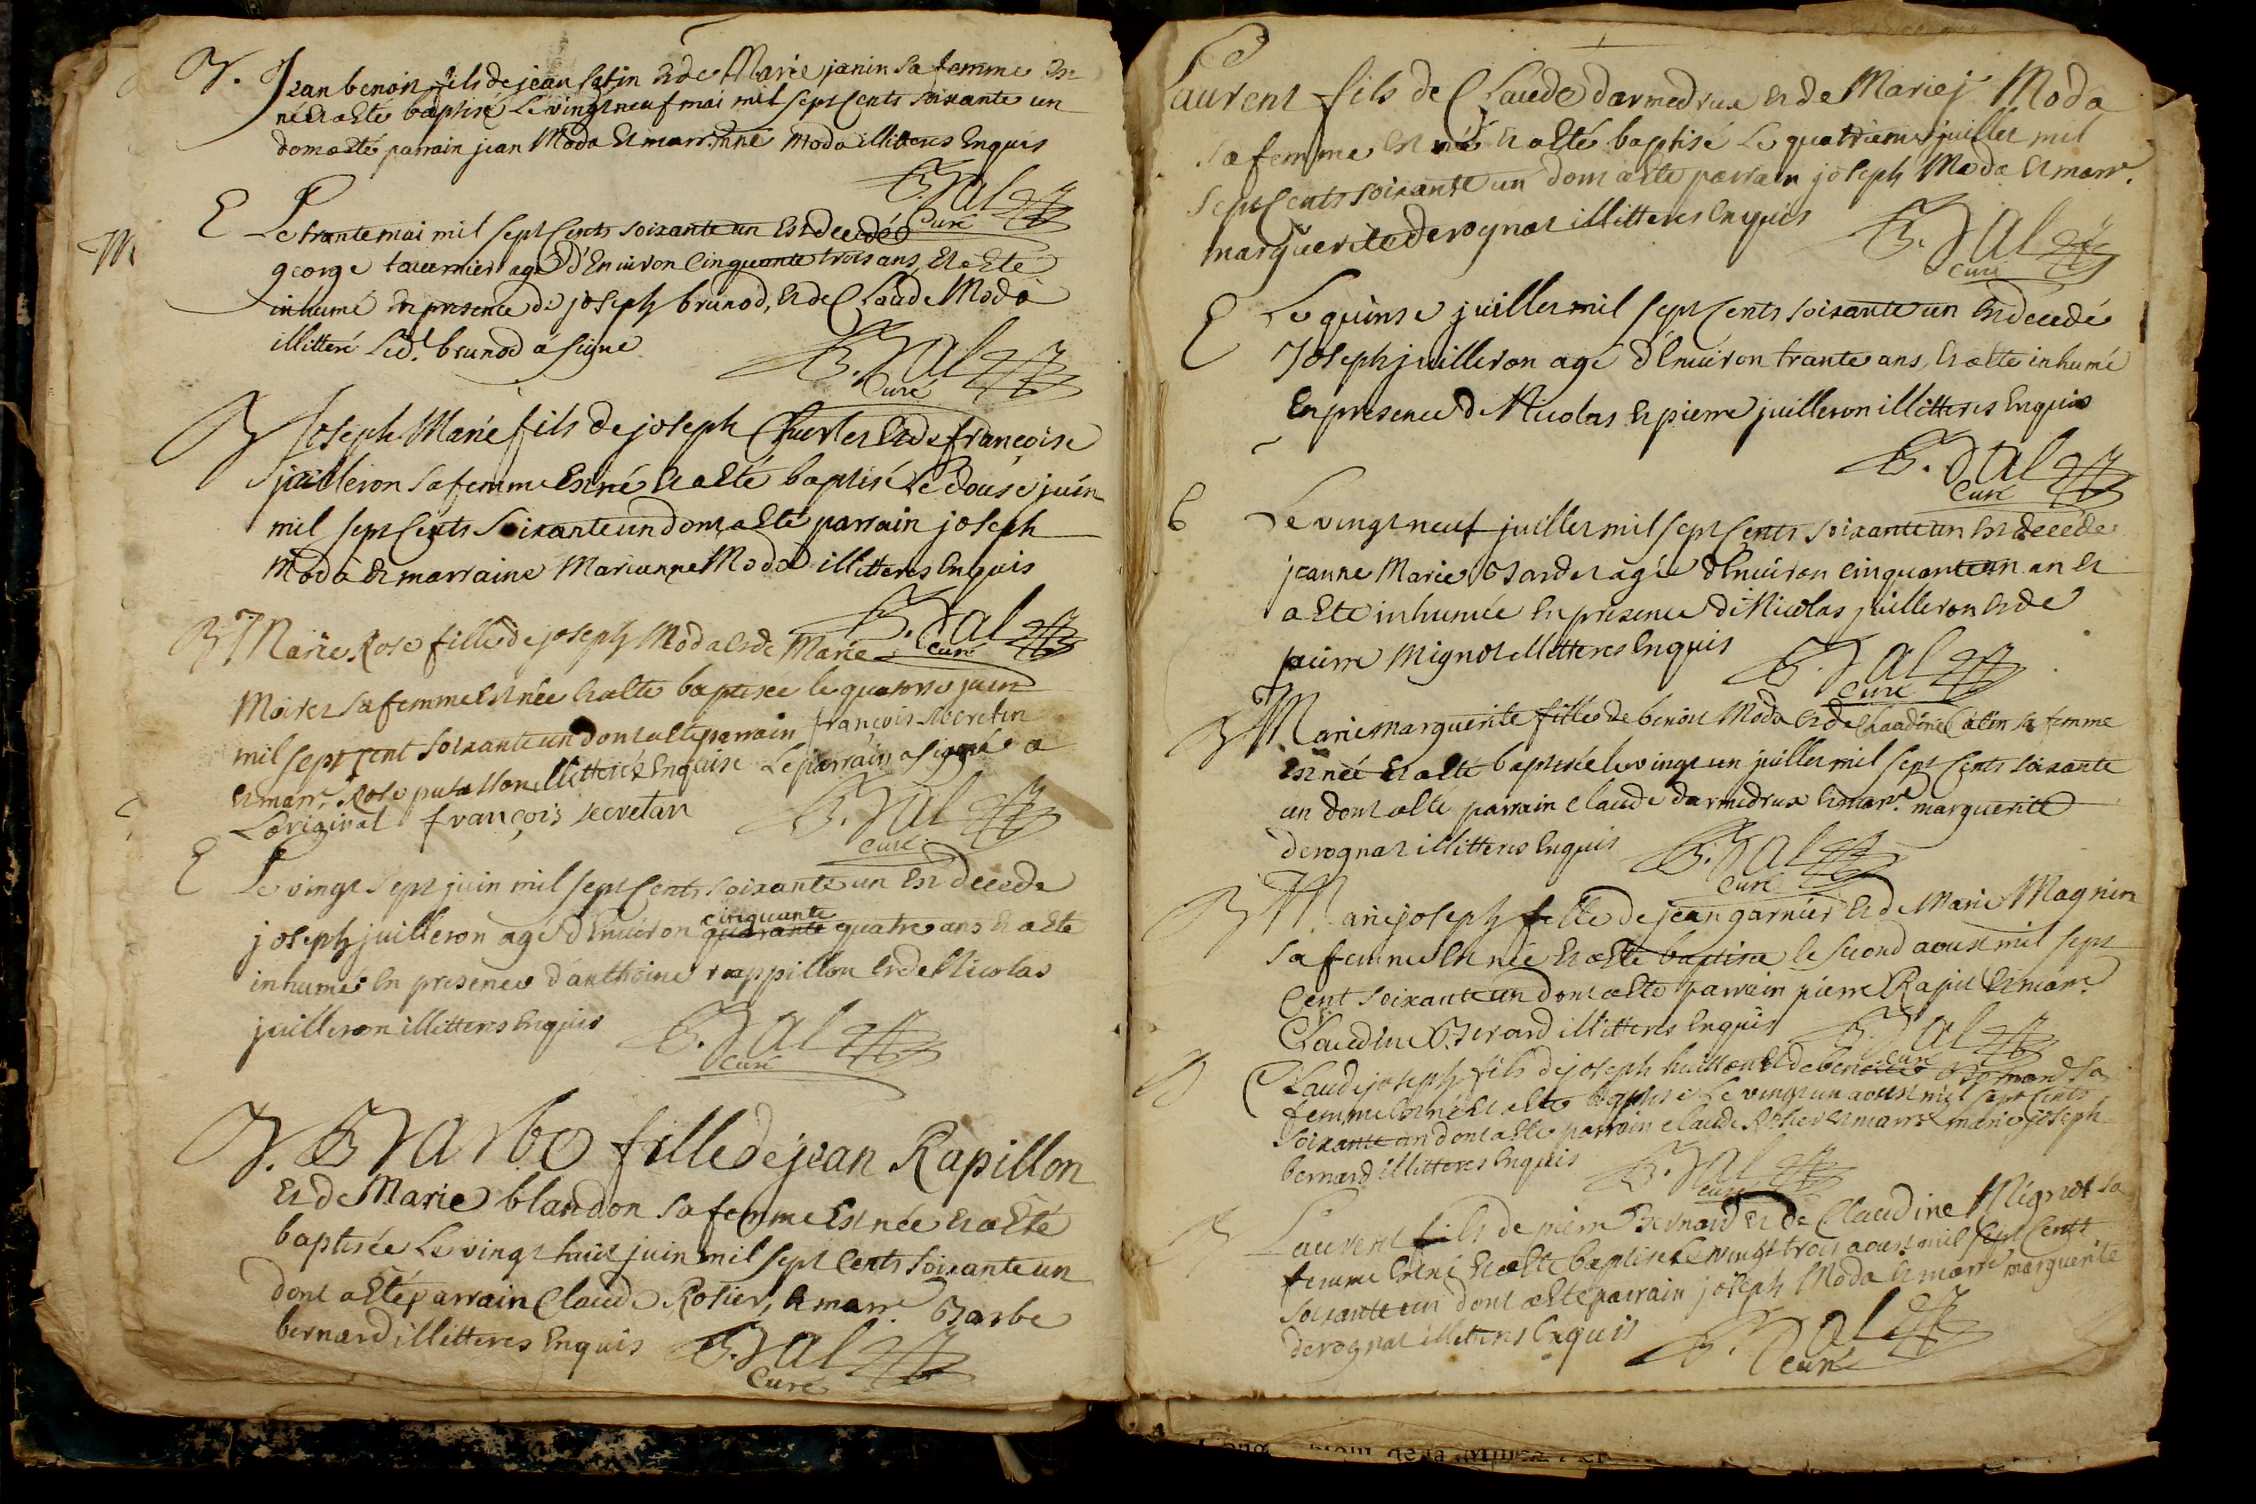 Jean benoit fils de jean Catin et de Marie janin sa femme est
né et a esté baptisé Le vingt neuf mai mil sept Cents soixante un
dont a esté parrain jean Moda et marr. Moda illitteres Enquis
B. Jal
Curé
E Le trante mai mil sept Cents soixante un Est decedé
george tavernier agé d'Enuiron Cinquante trois ans, Et a Esté
inhumé En presence de joseph brunod, et de Claude Moda
illitteré Led.t brunod a signé
B. Jal
Curé
B Joseph Marie fils de joseph et de françoise
juilleron sa femme Est né Et a Esté baptisé Le douse juin
mil sept Cents Soixante un dont a Esté parrain joseph
Moda Et marraine Marianne Moda illitteres Enquis
B. Jal
Curé
B Marie Rose fille de joseph Moda et de Marie
sa femme Est née Et a esté baptisee le quatorse juin
mil sept Cent soixante un dont a esté parrain françois secretan
Et marr.e Rose illitterée Enquise Le parrain a signé a
L'original françois secretan
B. Jal
Curé
E Le vingt sept juin mil sept Cents soixante un Est decedé
cinquante
joseph juilleron agé d'Enuiron quarante quatre ans Et a Esté
inhumé En presence d'anthoine rappillon Et de Nicolas
juilleron illitteres Enquis
B. Jal
Curé
B. Barbe fille de jean Rapillon
Et de Marie blandon sa femme Est née Et a Esté
baptisée Le vingt huit juin mil sept Cents soixante un
dont a Esté parrain Claude Rosier, Et marr.e Barbe
bernard illitteres Enquis
B. Jal
Curé
M
Laurent fils de Claude darmedrux Et de Marie j Moda
sa femme Est né Et a Esté baptisé Le quatrieme juillet mil
sept Cents soixante un dont a Esté parrain joseph Moda Et marr.e
marguerite derognat illitteres Enquis
B. Jal
Curé
E Le quinse juillet mil sept Cents soixante un Est decedé
Joseph juilleron agé d'Enuiron trante ans, Et a Esté inhumé
En presence de Nicolas Et pierre juilleron illitteres Enquis
B. Jal
Curé
E Le vingt neuf juillet mil sept Cents soixante un Est decedée
jeanne Marie agée d'Enuiron Cinquante un an Et
a Esté inhumée En presence de Nicolas juilleron Et de
pierre Mignot illitteres Enquis
B. Jal
Curé
B Marie marguerite fille de benoit Moda Et de Claudine Catin sa femme
Est née Et a Esté baptisée Le vingt un juillet mil sept Cents soixante
un dont a Esté parrain Claude darmedrux Et marr.e marguerite
derognat illitteres Enquis
B. Jal
Curé
B Marie joseph fille de jean garnier Et de Marie Magnin
sa femme Est née Et a Esté baptisée le second aoust mil sept
Cent soixante un dont a Esté parrain pierre Rapit Et marr.e
Claudine Berard illitteres Enquis
B. Jal
Curé
B Claude joseph fils de joseph Et de benoite sa
femme Est né Et a Esté baptisé Le vingt un aoust mil sept Cents
soixante un dont a Esté parrain Claude Rosier Et marr.e marie joseph
bernard illitteres Enquis
B. Jal
Curé
B Laurent fils de pierre Bernard Et de Claudine Mignot sa
femme Est né Et a Esté baptisé Le vingt trois aoust mil sept Cents
soixante un dont a Esté parrain joseph Moda Et marr.e marguerite
derognat illitteres Enquis
B. Jal
Curé